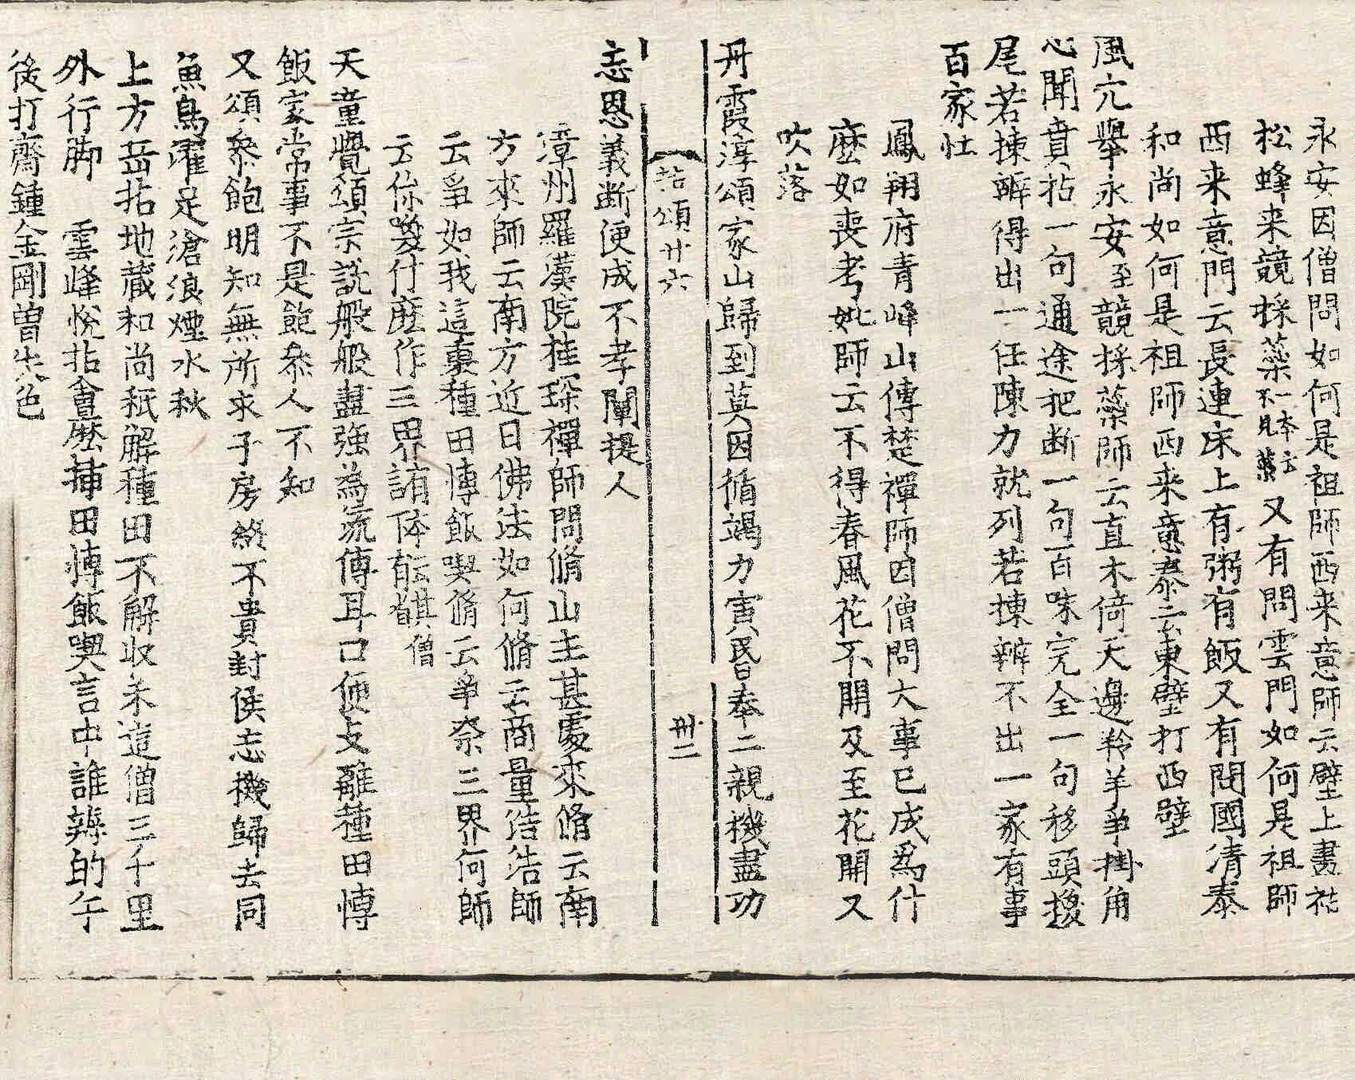 永安因僧問如何是祖師西来意師云壁上畫枯
松蜂来競採蘂一本云不見蘂又有問雲門如何是祖師
西来意門云長連床上有粥有飯又有問國清泰
和尚如何是祖師西来意泰云東壁打西壁
風穴舉永安至競採蘂師云直木倚天邊羚羊爭掛角
心聞賁拈一句通途把断一句百味完全一句移頭換
尾若揀辨得出一任陳力就列若揀辨不出一家有事
百家忙
鳳翔府青峰山傳楚禪師因僧問大事已成爲什
麽如喪考妣師云不得春風花不開及至花開又
吹落
丹霞淳頌家山歸到莫因循竭力寅昏奉二親機盡功
拈頌廿六 卅二
忘恩義断便成不孝闡提人
漳州羅漢院桂琛禪師問脩山主甚處來脩云南
方來師云南方近日佛法如何脩云商量浩浩師
云爭如我這裏種田愽飯喫脩云爭柰三界何師
云你喚什麽作三界 僧
天童覺頌宗說般般盡强為流傳耳口便支離種田愽
飯家常事不是飽叅人不知
又頌叅飽明知無所求子房終不貴封侯志機歸去同
魚鳥濯足滄浪煙水秋
上方岳拈地蔵和尚秖解種田不解收未這僧三千里
外行脚 雲峰悅拈會麽揷田愽飯喫言中誰辨的午
後打齋鍾金剛曽失色